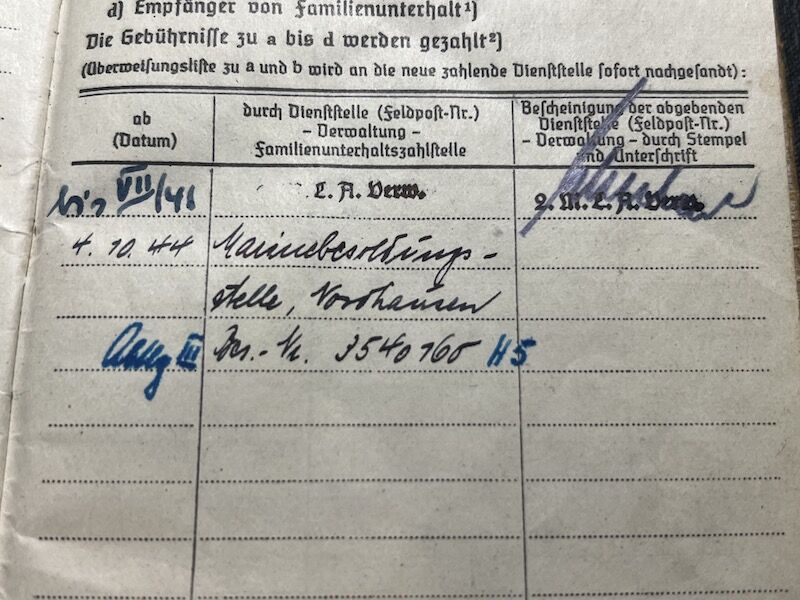 d) Empfänger von Familienunterhalt¹)
Die Gebührnisse zu a bis d werden gezahlt²)
(Überweisungsliste zu a und b wird an die neue zahlende Dienststelle sofort nachgesandt):
ab
(Datum)
durch Dienststelle (Feldpost-Nr.)
– Verwaltung –
Familienunterhaltszahlstelle
Bescheinigung der abgebenden
Dienststelle (Feldpost-Nr.)
– Verwaltung – durch Stempel
und Unterschrift
bis VII/41 L. A. Verw. 2. M. L. A. Verw.
4. 10. 44 Marinebesoldungs-
stelle, Nordhausen
III Bes.-Nr. 3540160 H5